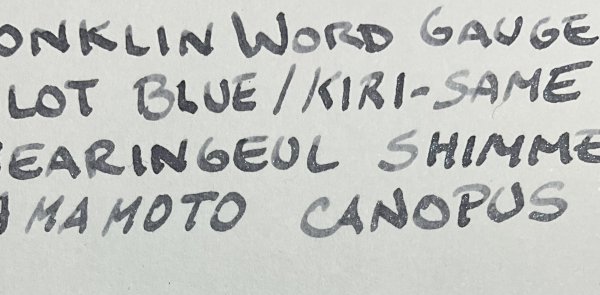 ONKLIN WORD GAUGE
LOT BLUE/KIRI-SAME
EARINGEUL SHIMME
MAMOTO CANOPUS